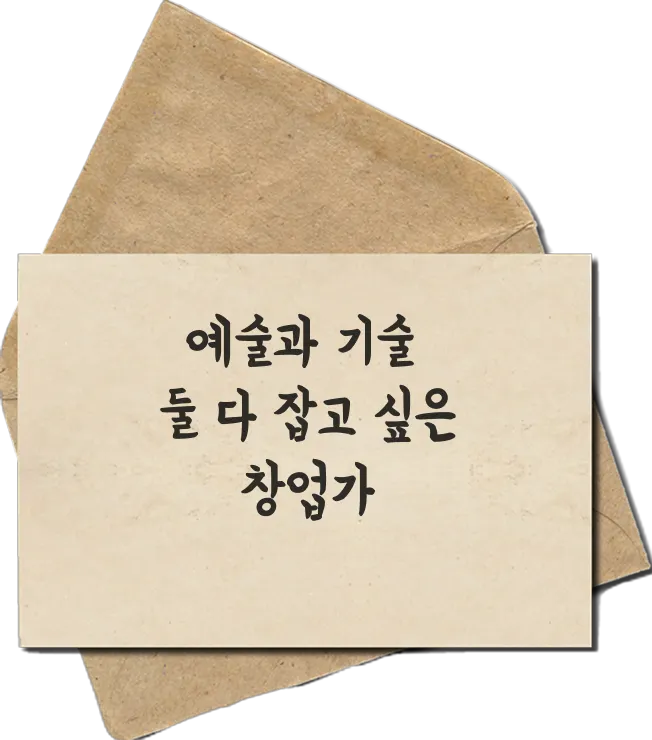 예술과 기술
둘 다 잡고 싶은
창업가